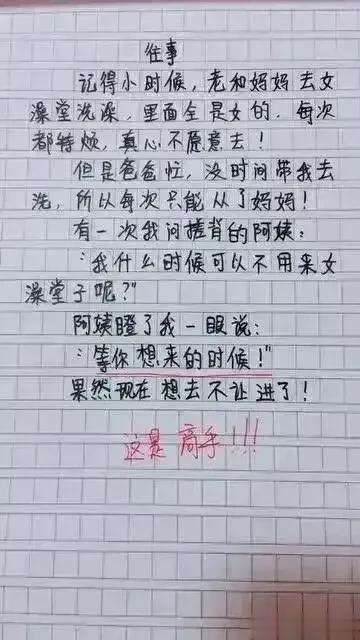 往事
记得小时候，老和妈妈去女
澡堂洗澡，里面全是女的，每次
都特烦，真心不愿意去！
但是爸爸忙，没时间带我去
洗，所以每次只能从了妈妈！
有一次我问搓背的阿姨：
"我什么时候可以不用来女
澡堂子呢？"
阿姨瞪了我一眼说：
"等你想来的时候！"
果然现在想去不让进了！
这是高手!!!